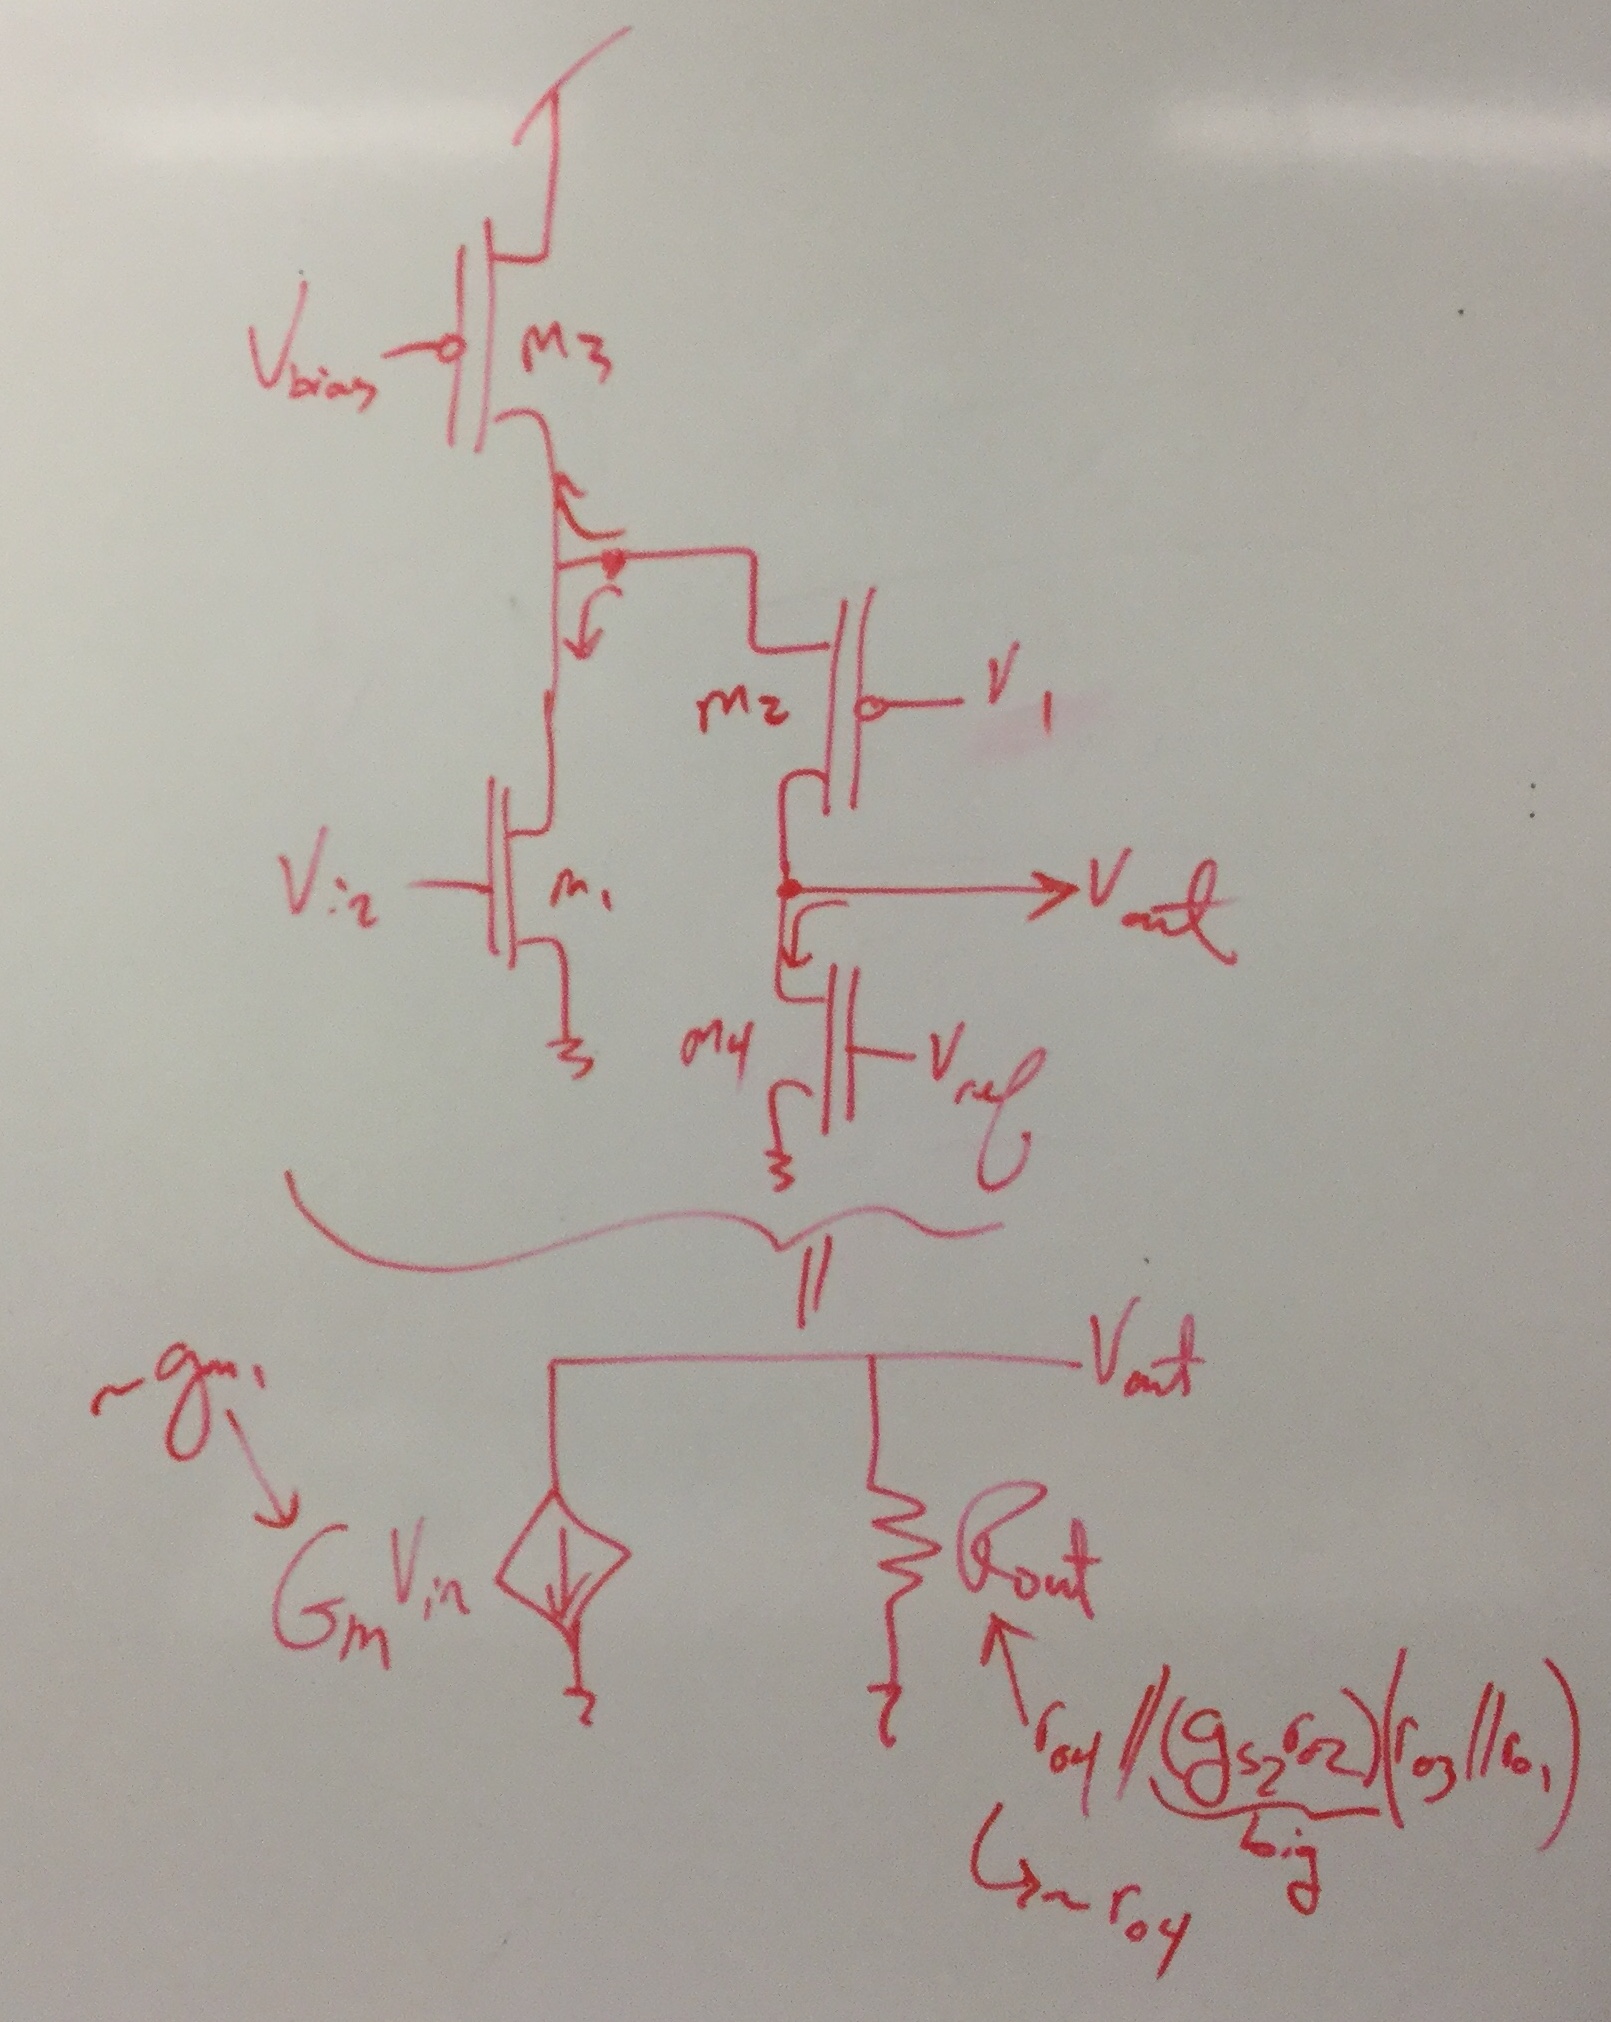 Vbias
M3
M2
V1
Vin
M1
Vout
M4
Vref
//
Vout
~gm1
GmVin
Rout
ro4 // (gs2ro2)(ro3//ro1)
big
~ ro4